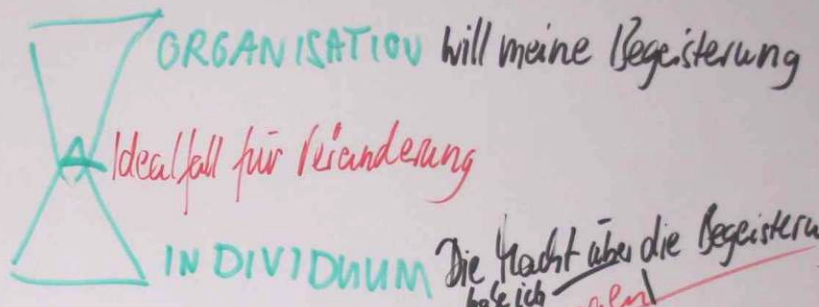 ORGANISATION will meine Begeisterung
Idealfall für Veränderung
INDIVIDUUM Die Macht über die Begeisteru
habe ich